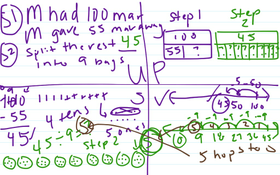 S1) M had 100 mar
M gave 55 mar away
S2) Split the rest 45
into 9 bags
Step 1
Step 2
100
55 ?
45
U P
S V
100
- 55
45
4 tens
5 ones
45 ÷ 9 = 5
Step 2
5-50
45 50 100
-9 -9 -9 -9 -9
0 9 18 27 36 45
5 hops to 0